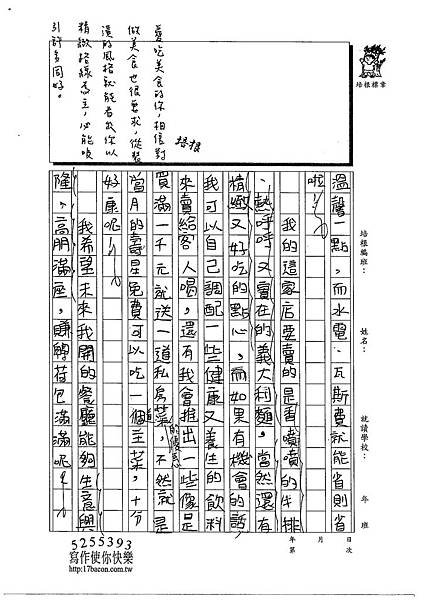 培根標章
培根編班：
姓名：
就讀學校：
年 班
年 月 日
第 次
溫馨一點，而水電、瓦斯費就能省則省
啦！
我的這家店要賣的是香噴噴的牛排
、熱呼呼又實在的義大利麵，當然還有
精緻又好吃的點心，而如果有機會的話，
我可以自己調配一些健康又養生的飲料
來賣給客人喝，還有我會推出一些像是
買滿一千元就送一道私房菜，不然就是
的優惠
當月的壽星免費可以吃一個主菜，十分
道
好康呢！
我希望未來我開的餐廳能夠生意興
隆，高朋滿座，賺得荷包滿滿呢！
愛吃美食的你，相信對
做美食也很要求，從裝
潢的風格就能看出你以
精緻路線為主，必能吸
引許多同好。
培根
5255393
寫作使你快樂
http://17bacon.com.tw/